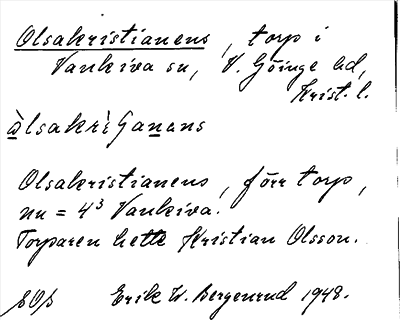 Olsakristianens, torp i
Vankiva sn, V. Göinge hd,
Krist. l.
òlsakrìsanans
Olsakristianens, förr torp,
nu = 4³ Vankiva.
Torparen hette Kristian Olsson.
Erik W. Bergenrud 1948.